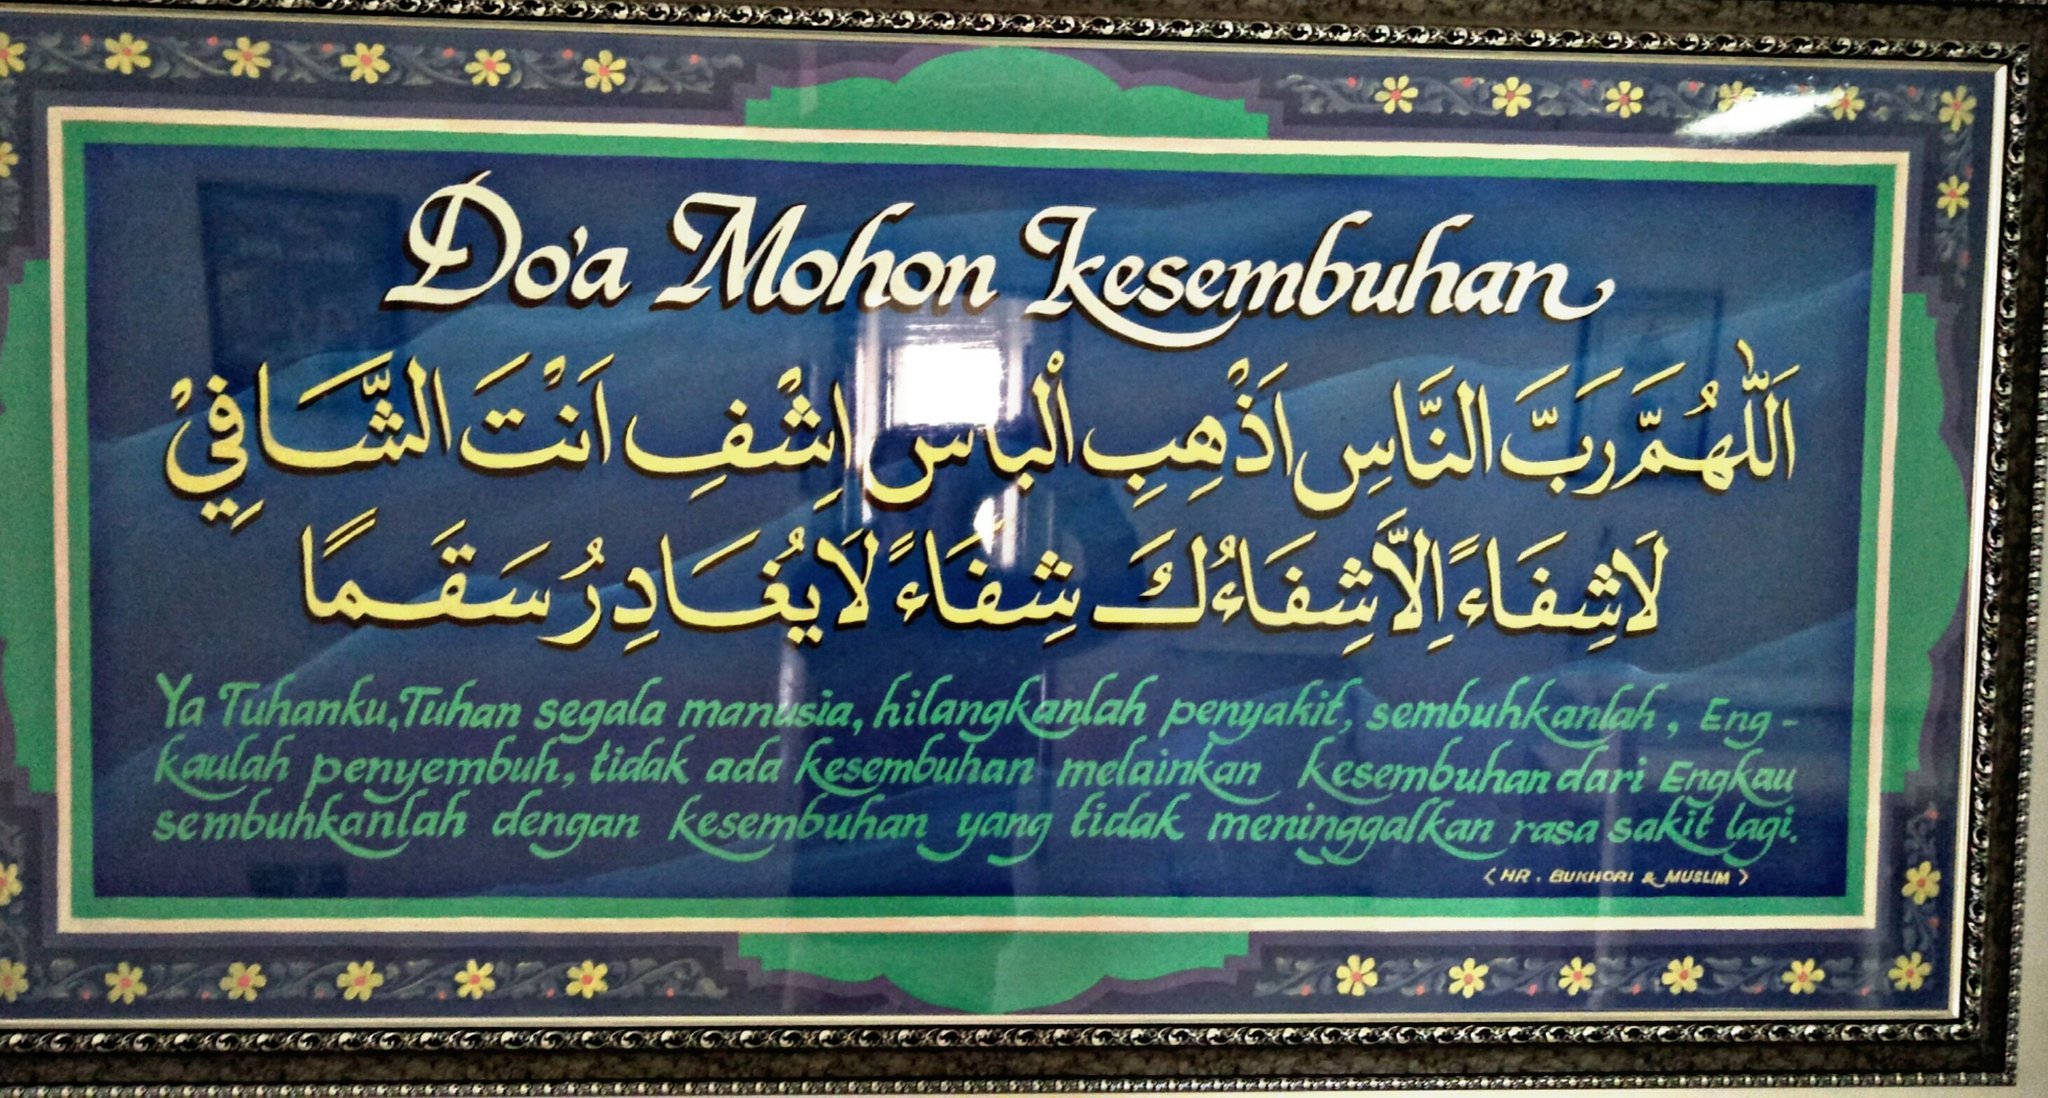 Do'a Mohon Kesembuhan
اَللّٰهُمَّ رَبَّ النَّاسِ اَذْهِبِ الْبأس اِشْفِ اَنْتَ الشَّافِيْ
لَاشِفَاءً اِلَّاشِفَاءُكَ شِفَاءً لَايُغَادِرُ سَقَمًا
Ya Tuhanku, Tuhan segala manusia, hilangkanlah penyakit, sembuhkanlah, Eng-
kaulah penyembuh, tidak ada kesembuhan melainkan kesembuhan dari Engkau
sembuhkanlah dengan kesembuhan yang tidak meninggalkan rasa sakit lagi.
<HR. BUKHORI & MUSLIM>